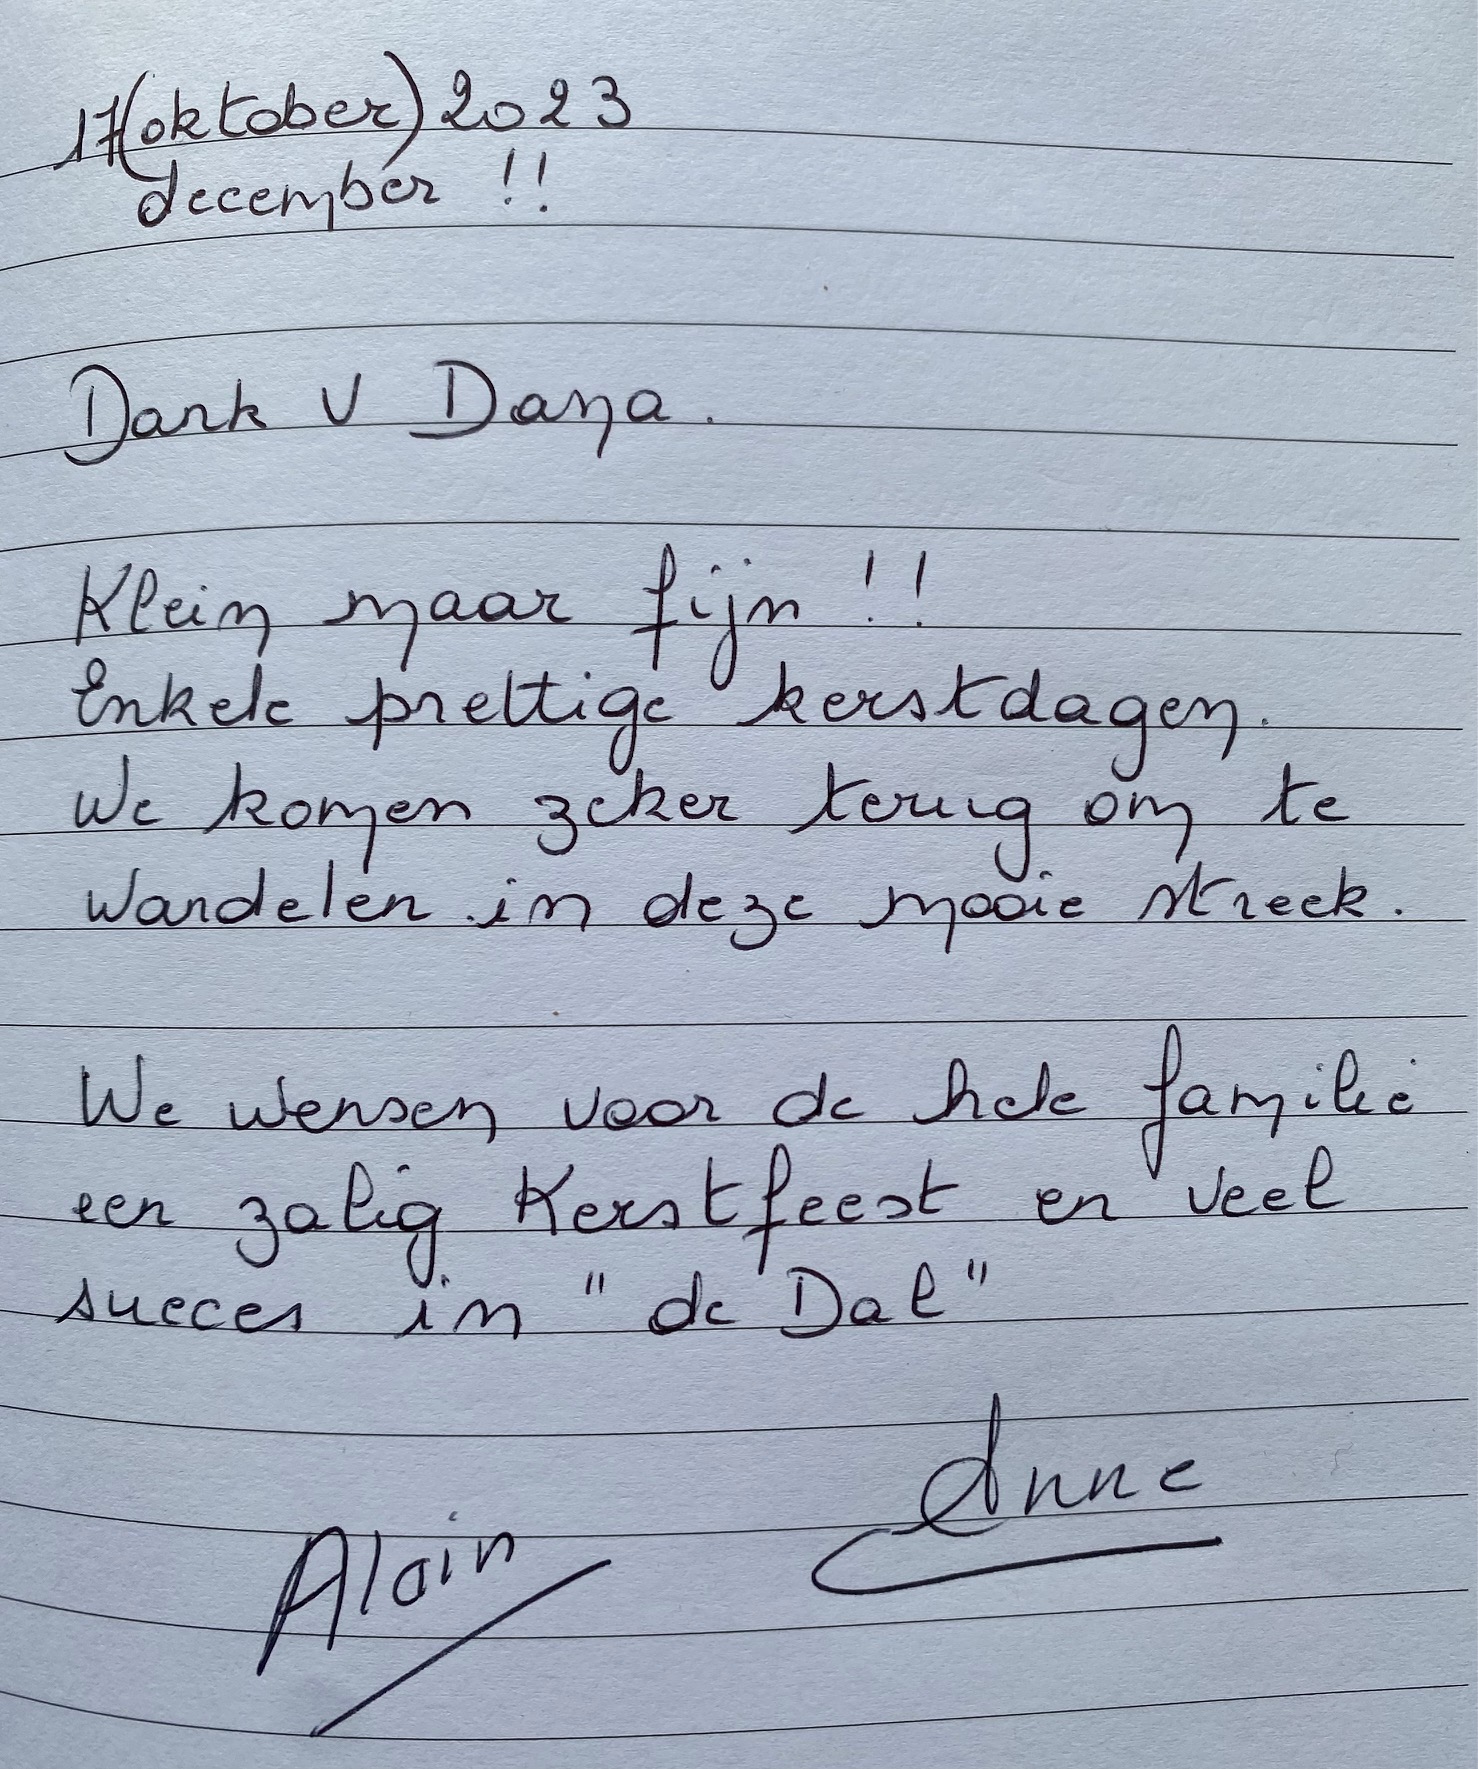 17(oktober) 2023
december !!
Dank U Dana.
Klein maar fijn !!
Enkele prettige kerstdagen.
We komen zeker terug om te
wandelen in deze mooie streek.
We wensen voor de hele familie
een zalig Kerstfeest en veel
succes in "de Dal"
Anne
Alain